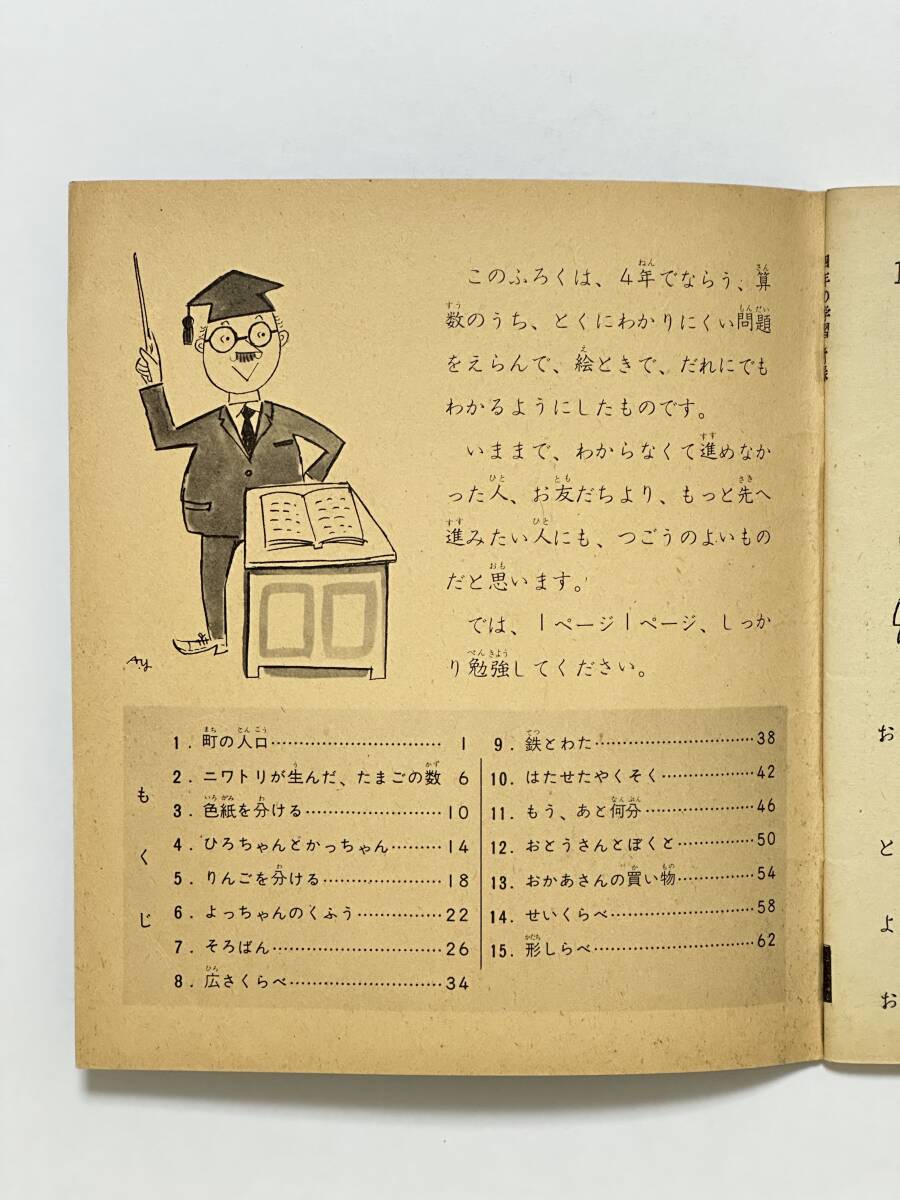 このふろくは、4年でならう、算
数のうち、とくにわかりにくい問題
をえらんで、絵ときで、だれにでも
わかるようにしたものです。
いままで、わからなくて進めなか
った人、お友だちより、もっと先へ
進みたい人にも、つごうのよいもの
だと思います。
では、1ページ1ページ、しっか
り勉強してください。
もくじ
1. 町の人口…………………………1
2. ニワトリが生んだ、たまごの数 6
3. 色紙を分ける……………………10
4. ひろちゃんとかっちゃん………14
5. りんごを分ける…………………18
6. よっちゃんのくふう……………22
7. そろばん…………………………26
8. 広さくらべ………………………34
9. 鉄とわた…………………………38
10. はたせたやくそく………………42
11. もう、あと何分…………………46
12. おとうさんとぼくと……………50
13. おかあさんの買い物……………54
14. せいくらべ………………………58
15. 形しらべ…………………………62
AY
お
と
よ
お